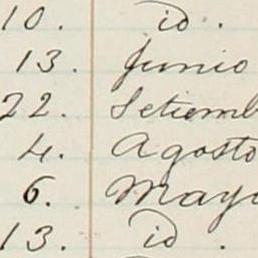 10. id.
13. Junio
22. Setiemb
4. Agosto
6. Mayo
13. id.